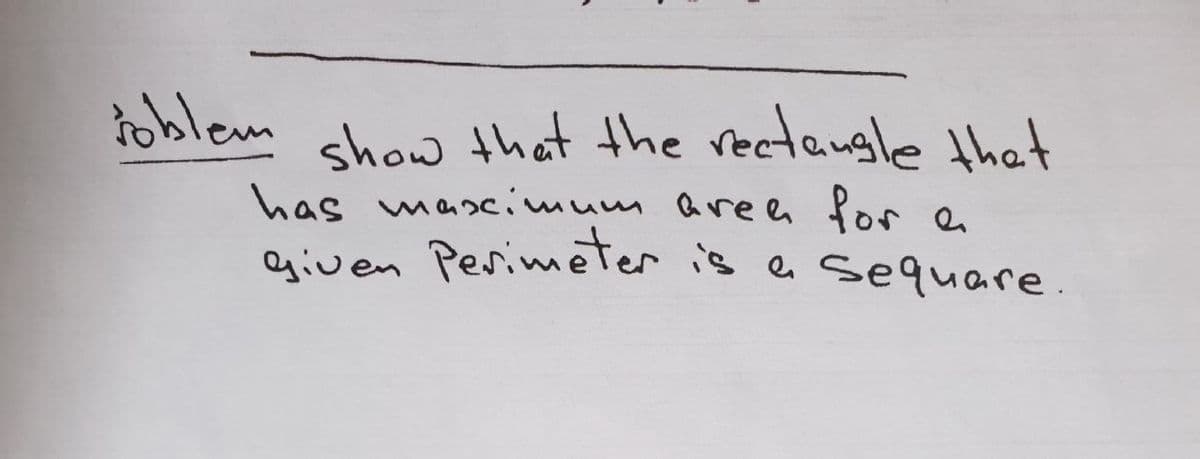 roblem show that the rectangle that
has maximum area for a
given Perimeter is a Sequare.